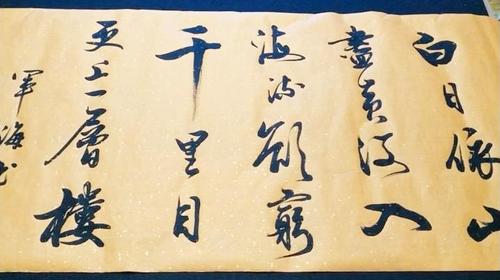 白日依山
盡黃河入
海流欲窮
千里目
更上一層樓
軍海书